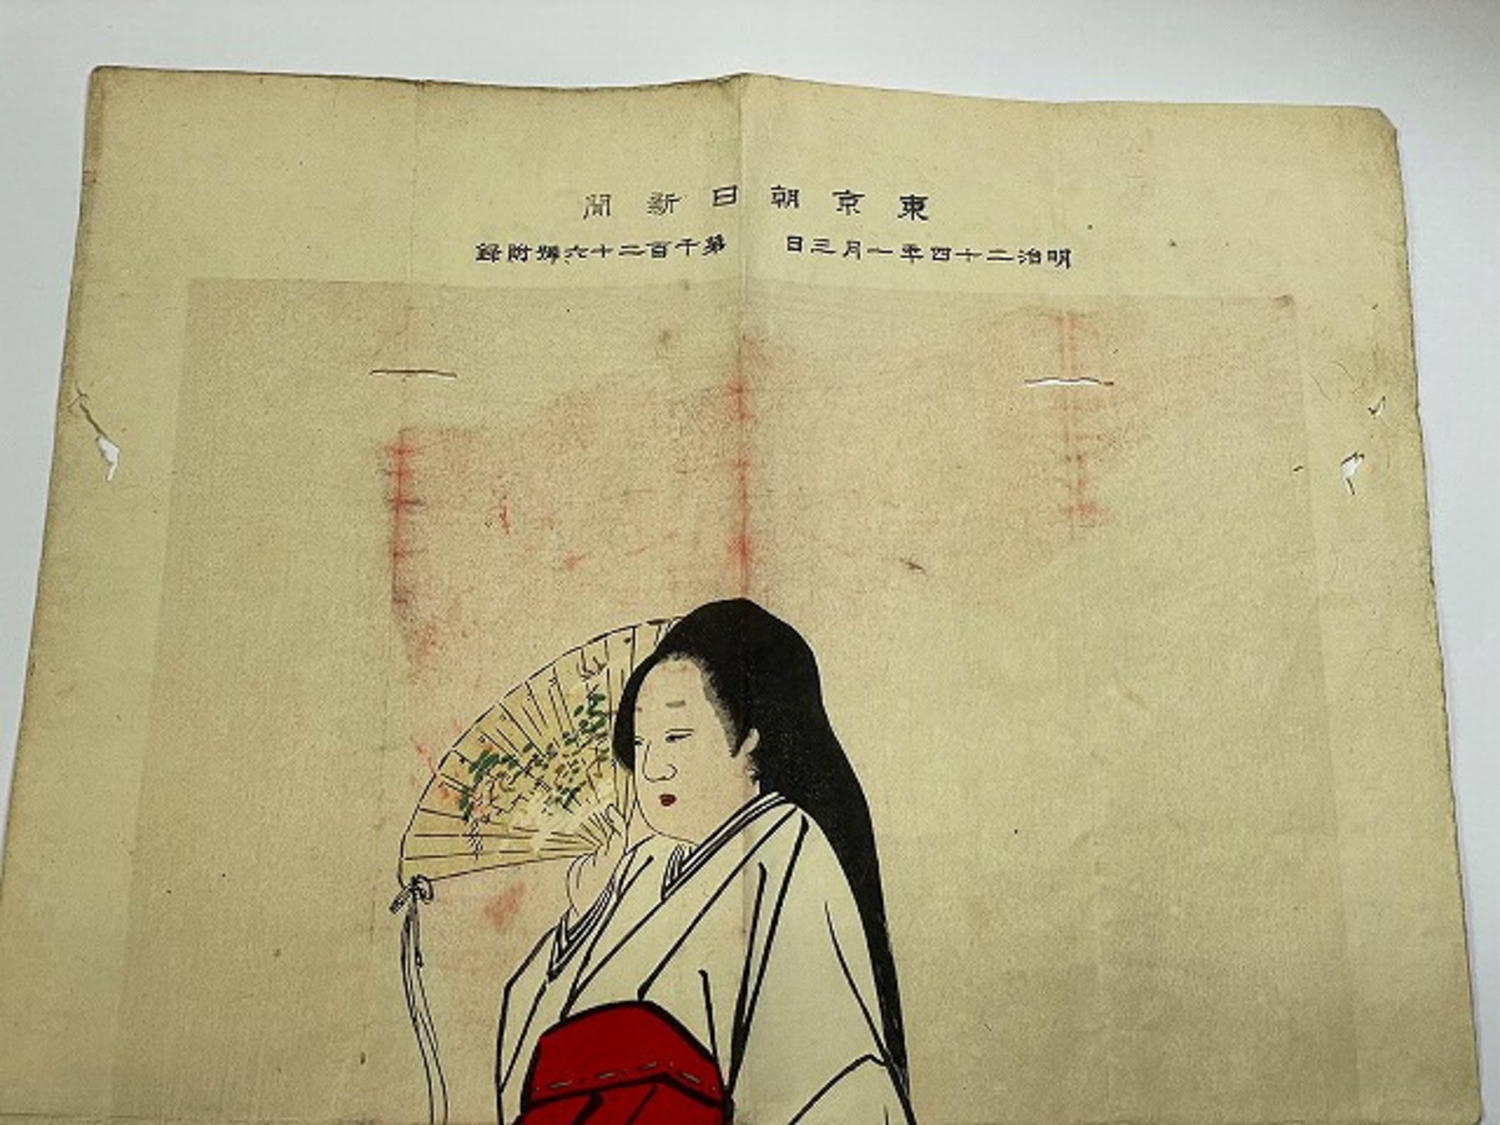 東京朝日新聞
明治二十四年一月三日 第千百二十六號附録